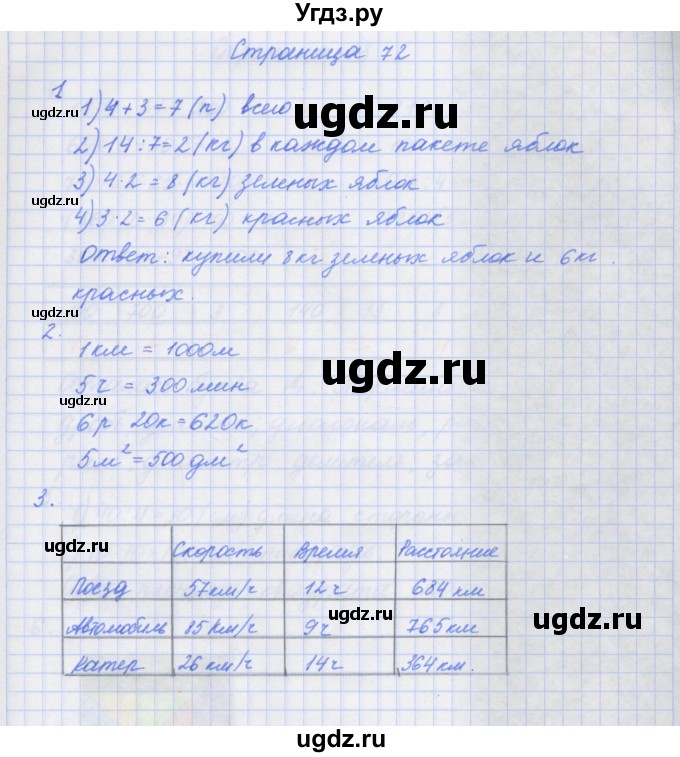 Угдз.ру
Страница 72
1
1) 4 + 3 = 7 (п) всего
ugdz.ru
ugdz.ru
2) 14 : 7 = 2 (кг) в каждом пакете яблок
3) 4 · 2 = 8 (кг) зеленых яблок
ugdz.ru
4) 3 · 2 = 6 (кг) красных яблок
Ответ: купили 8 кг зеленых яблок и 6 кг.
красных.
ugdz.ru
2.
1 км = 1000 м
ugdz.ru
5 ч = 300 мин
ugdz.ru
6 р 20 к = 620 к
5 м² = 500 дм²
3.
ugdz.ru
Скорость Время Расстояние
Поезд 57 км/ч 12 ч 684 км
ugdz.ru
ugdz.ru
Автомобиль 85 км/ч 9 ч 765 км
Катер 26 км/ч 14 ч 364 км.
ugdz.ru